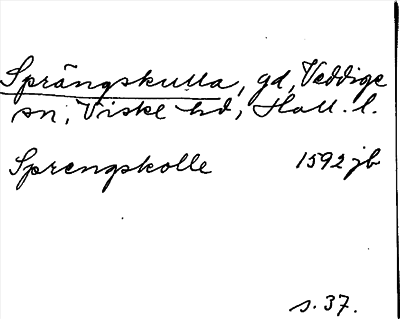 Sprängskulla, gd, Veddige
sn, Viske hd, Hall. l.
Sprengskolle 1592 jb
s. 37.